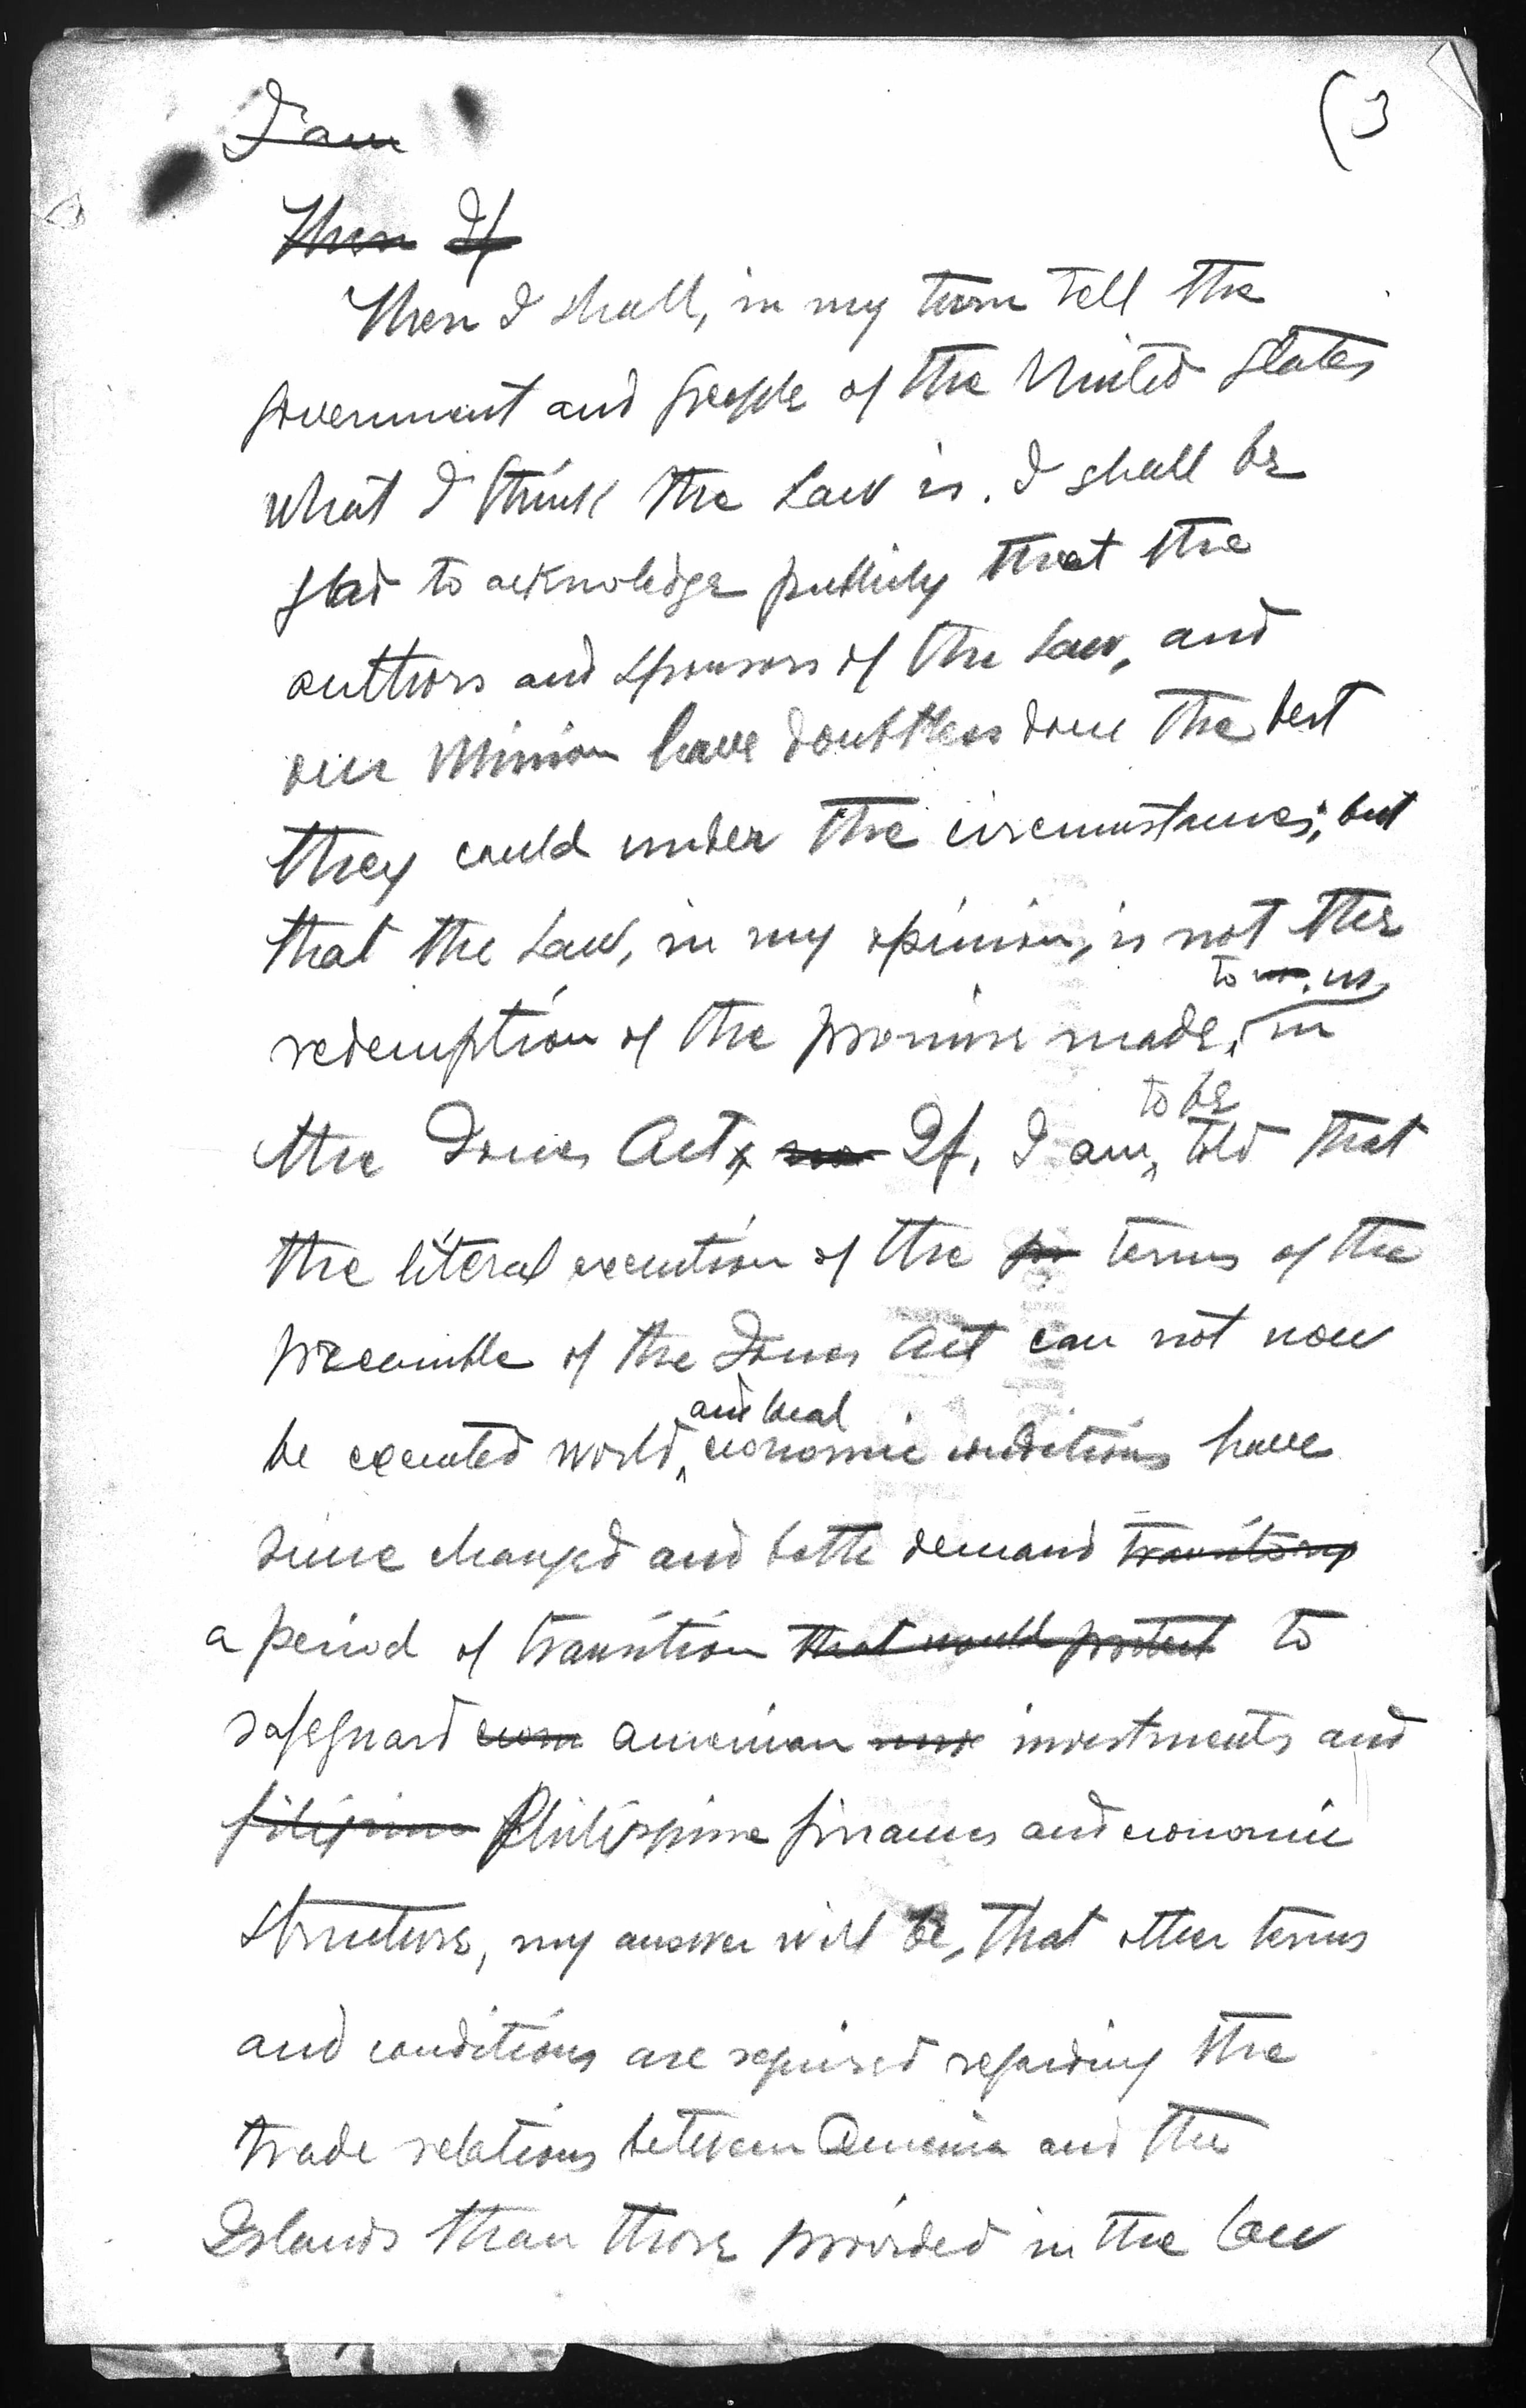 (3
I am
Then If
Then I shall, in my turn tell the
government and people of the United States
what I think the Law is. I shall be
glad to acknowledge publicly that the
authors and sponsors of the Law, and
our Mission have doubtless done the best
they could under the circumstances; but
that the Law, in my opinion, is not the
to us,
redemption of the promise made, in
to be
the Jones Act, If, I am, told that
the literal execution of the terms of the
preamble of the Jones Act can not now
and local
be executed world, economic conditions have
since changed and both demand transitory
a period of transition that would protect to
safeguard American investments and
filipino Philippine finances and economic
structure, my answer will be, that other terms
and conditions are required regarding the
trade relations between America and the
Islands than those provided in the law